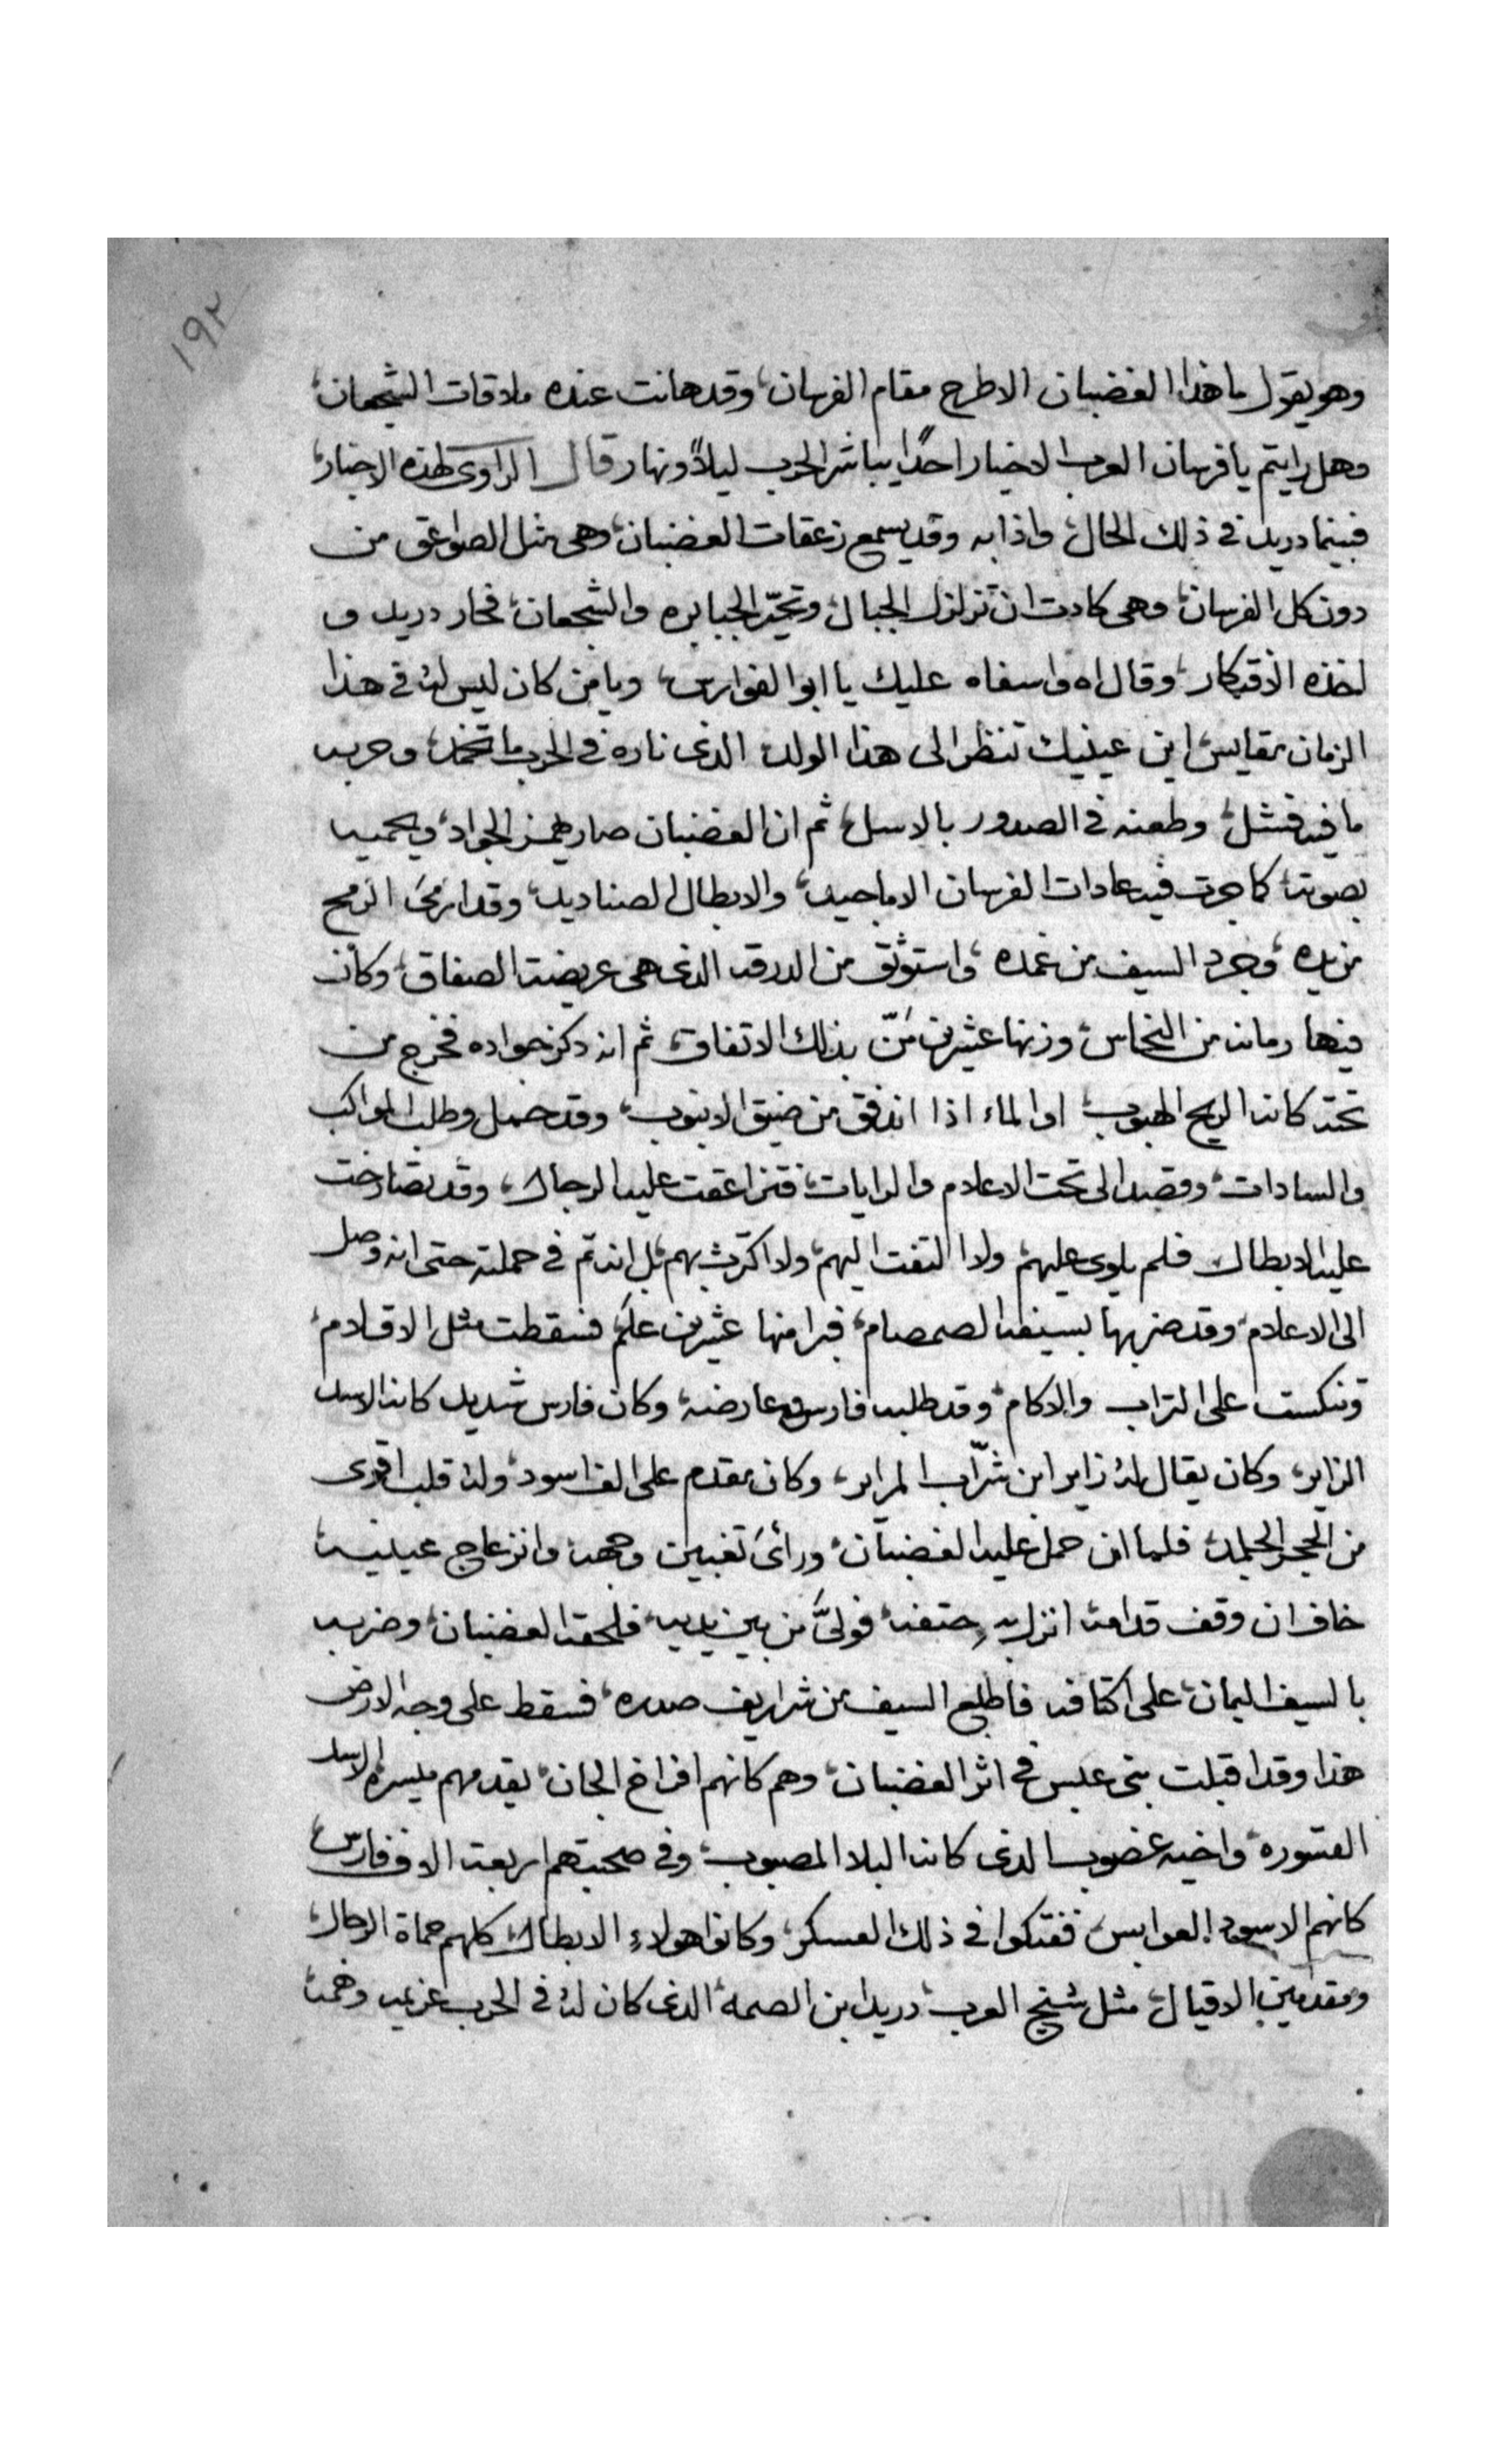 ١٩٢
وهو يقول ما هذا الغضبان الا طرح مقام الفرسان، وقد هانت عنده ملاقات الشجعان،
وهل رايتم يا فرسان العرب الاخيار احدًا يباشر الحرب ليلاً ونهار قال الراوى لهذه الاخبار،
فبينما دريد فى ذلك الحال، واذا به وقد يسمع زعقات الغضبان، وهى مثل الصواعق من
دون كل الفرسان، وهى كادت ان تزلزل الجبال، وتحيّر الجبابره والشجعان، فحار دريد و
اخذه الافتكار، وقال اه وا سفاه عليك يا ابوا الفوارس، ويا من كان ليس له فى هذا
الزمان مقايس، اين عينيك تنظر الى هذا الولد الذى ناره فى الحرب ما تخمد، وحربه
ما فيه فشل، وطعنه فى الصدور بالاسل، ثم ان الغضبان صار يهمز الجواد، ويحميه
بصوته، كما جرت فيه عادات الفرسان الاماجيد، والابطال الصناديد، وقد ارمى الرمح
من يده، وجرد السيف من غمده، واستوثق من الدرقه الذى هى عريضة الصفاق، وكان
فيها رمانه من النحاس، وزنها عشرين مَنّ بذلك الاتفاق، ثم انه دكز جواده فخرج من
تحته كانه الريح الهبوب، او الماء اذا اندفق من ضيق الانبوب، وقد حمل وطلب المواكب
والسادات، وقصد الى تحت الاعلام والرايات، فتزاعقت عليه الرجال، وقد تصارخت
عليه الابطال فلم يلوى عليهم، ولا التفت اليهم، ولا اكترث بهم، بل انه تم فى حملته حتى انه وصل
الى الاعلام، وقد ضربها بسيفه الصمصام، فبرا منها عشرين علم، فسقطت مثل الاقلام،
وتنكست على التراب والاكام، وقد طلبه فارس وعارضه، وكان فارس شديد كانه الاسد
الزاير، وكان يقال له زاير ابن شرّاب المراير، وكان مقدم على الف اسود، وله قلب اقوى
من الحجر الجلمد، فلما ان حمل عليه الغضبان، ورأى تغيير وجهه وانزعاج عينيه،
خاف ان وقف قدامه، انزل به حتفه، فولىَّ من بين يديه، فلحقه الغضبان، وضربه
بالسيف اليمان، على اكتافه فاطلع السيف من شراريف صدره، فسقط على وجه الارض
هذا وقد اقبلت بنى عبس فى اثر الغضبان، وهم كانهم افراخ الجان، يقدمهم ميسره الاسد
القسوره، واخيه غضوب الذى كانه البلا المصبوب، وفى صحبتهم اربعة الاف فارس،
كانهم الاسود العوابس، ففتكوا فى ذلك العسكر، وكانوا هولاء الابطال كلهم حماة الرجال،
ومقدمين الاقيال، مثل شيخ العرب، دريد ابن الصمه، الذى كان له فى الحرب عزيمه وهمه،